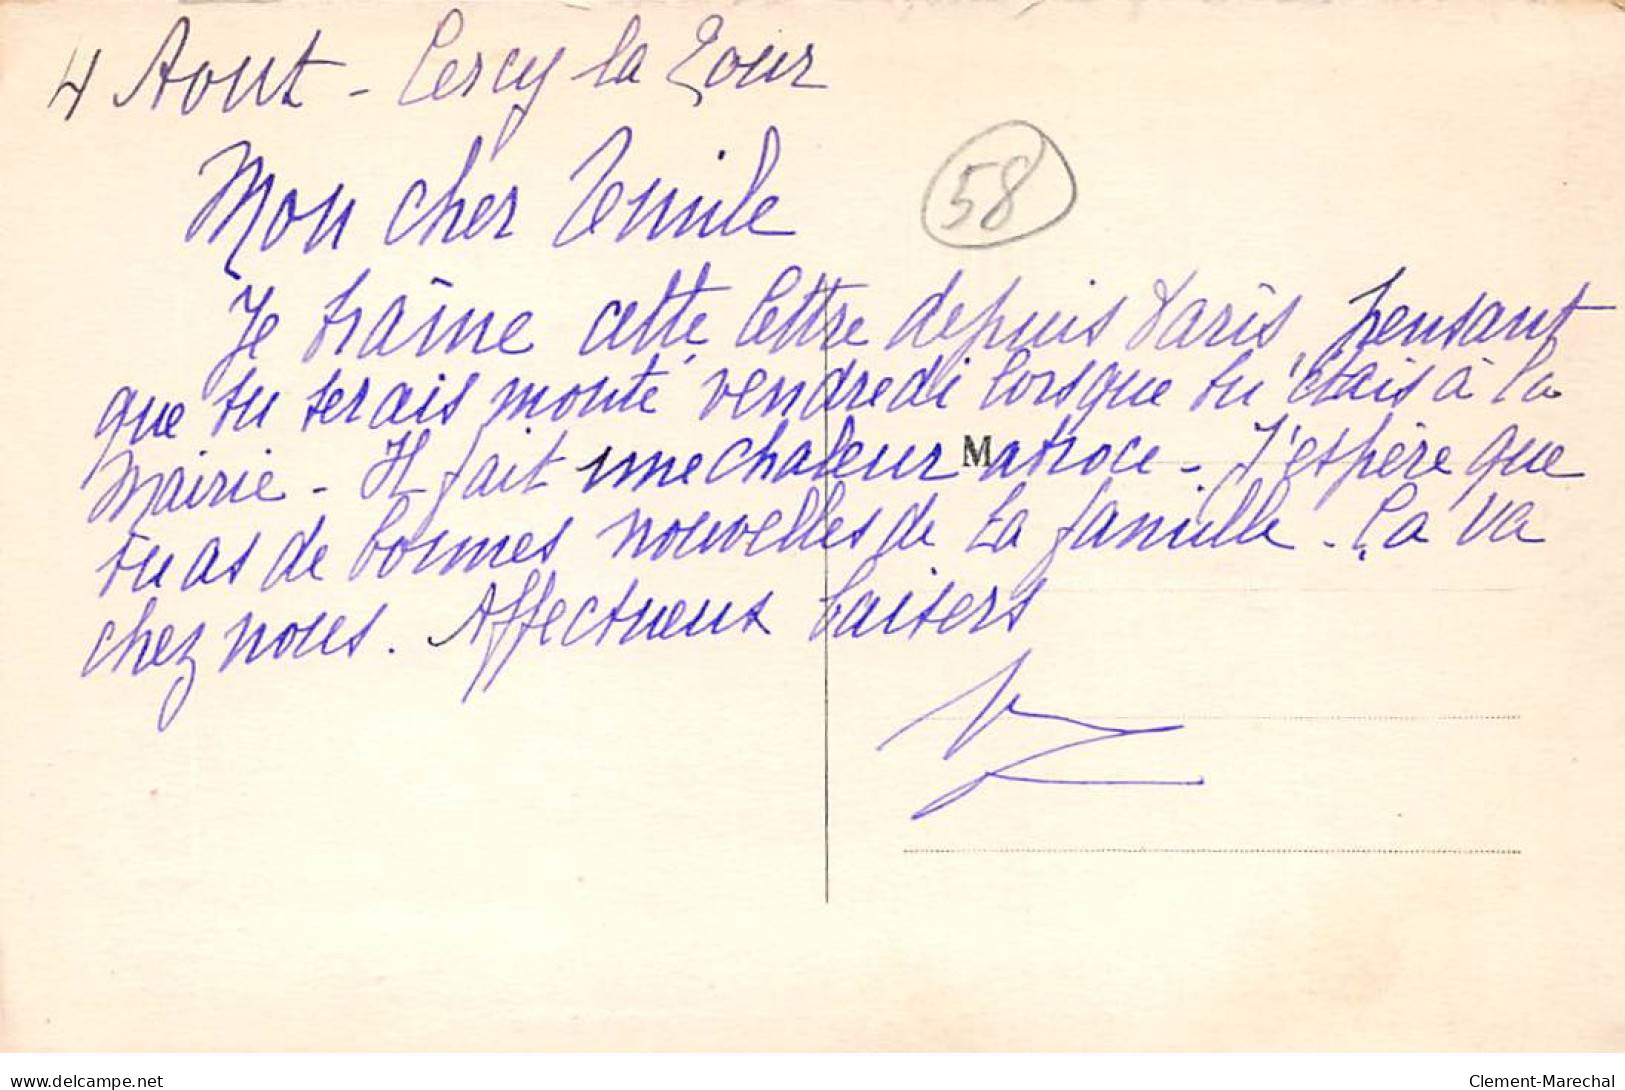 4 Aout - Cercy la Tour
Mon cher Emile
58
Je traîne cette lettre depuis Paris, pensant
que tu serais monté vendredi lorsque tu étais à la
Mairie - Il fait une chaleur atroce - J'espère que
tu as de bonnes nouvelles de ta famille. Ça va
chez nous. Affectueux baisers
M
www.delcampe.net
Clement-Marechal